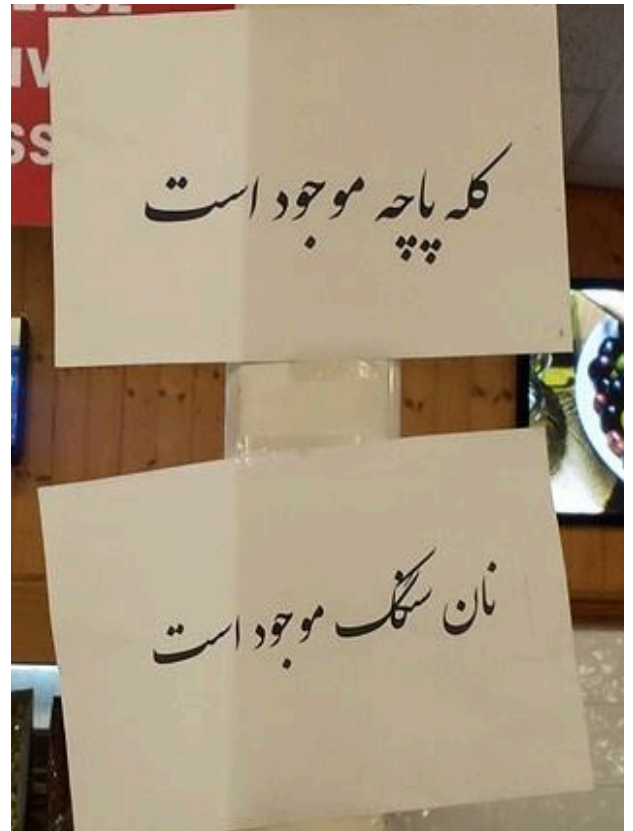 کله پاچه موجود است
نان سنگک موجود است